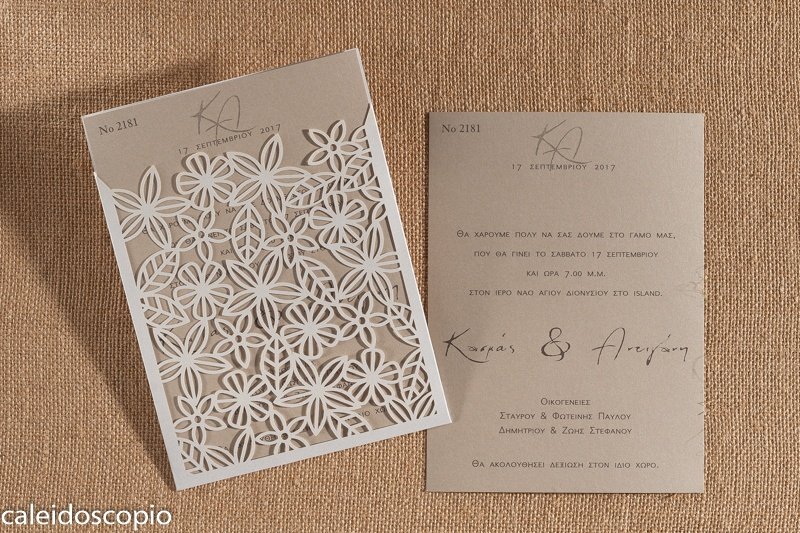 No 2181
ΚΑ
17 ΣΕΠΤΕΜΒΡΙΟΥ 2017
No 2181
ΚΑ
17 ΣΕΠΤΕΜΒΡΙΟΥ 2017
ΘΑ ΧΑΡΟΥΜΕ ΠΟΛΥ ΝΑ ΣΑΣ ΔΟΥΜΕ ΣΤΟ ΓΑΜΟ ΜΑΣ,
ΠΟΥ ΘΑ ΓΙΝΕΙ ΤΟ ΣΑΒΒΑΤΟ 17 ΣΕΠΤΕΜΒΡΙΟΥ
ΚΑΙ ΩΡΑ 7.00 Μ.Μ.
ΣΤΟΝ ΙΕΡΟ ΝΑΟ ΑΓΙΟΥ ΔΙΟΝΥΣΙΟΥ ΣΤΟ ISLAND.
Κοσμάς & Αντιγόνη
ΟΙΚΟΓΕΝΕΙΕΣ
ΣΤΑΥΡΟΥ & ΦΩΤΕΙΝΗΣ ΠΑΥΛΟΥ
ΔΗΜΗΤΡΙΟΥ & ΖΩΗΣ ΣΤΕΦΑΝΟΥ
ΘΑ ΑΚΟΛΟΥΘΗΣΕΙ ΔΕΞΙΩΣΗ ΣΤΟΝ ΙΔΙΟ ΧΩΡΟ.
caleidoscopio